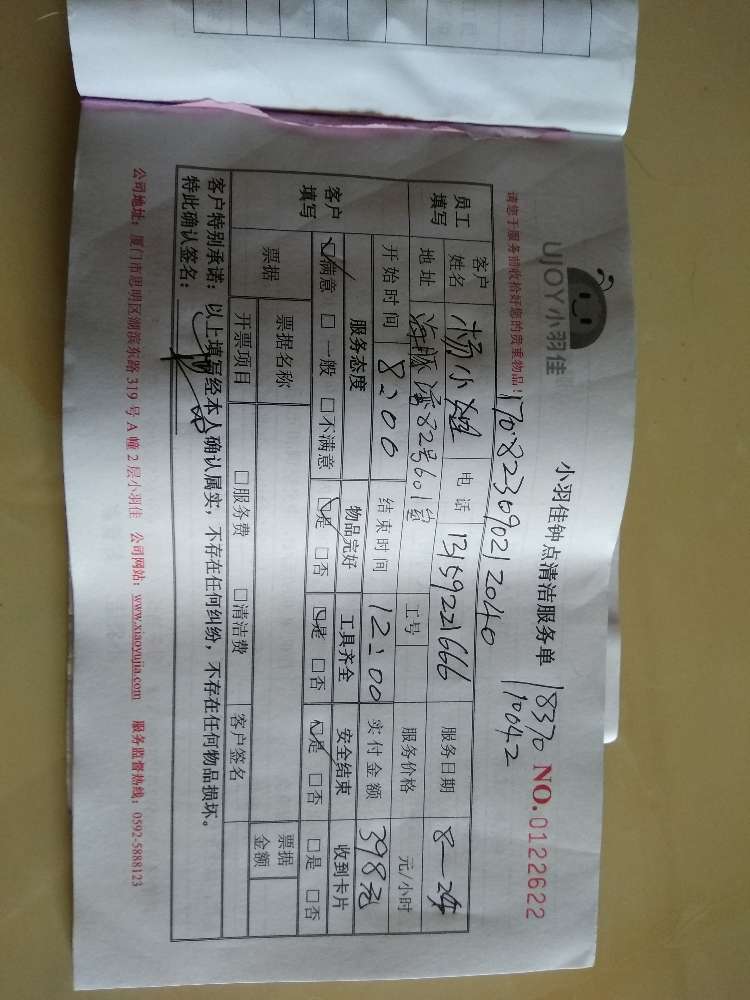 UJOY小羽佳
小羽佳钟点清洁服务单
18370
110042
NO.0122622
请您于服务前收拾好您的贵重物品！
170823090212040
员工填写
客户姓名 杨小姐 电话 13159221666 服务日期 8—24
地址 海脉湾82号601室 工号 服务价格 元/小时
开始时间 8:00 结束时间 12:00 实付金额 398元
客户填写
服务态度 物品完好 工具齐全 安全结束 收到卡片
☑满意 □一般 □不满意 ☑是 □否 ☑是 □否 ☑是 □否 □是 □否
票据 票据名称 票据金额
开票项目 □服务费 □清洁费 客户签名
客户特别承诺：以上填写经本人确认属实，不存在任何纠纷，不存在任何物品损坏。
特此确认签名：
公司地址：厦门市思明区湖滨东路 319 号 A 幢 2 层小羽佳 公司网站：www.xiaoyujia.com 服务监督热线：0592-5888123